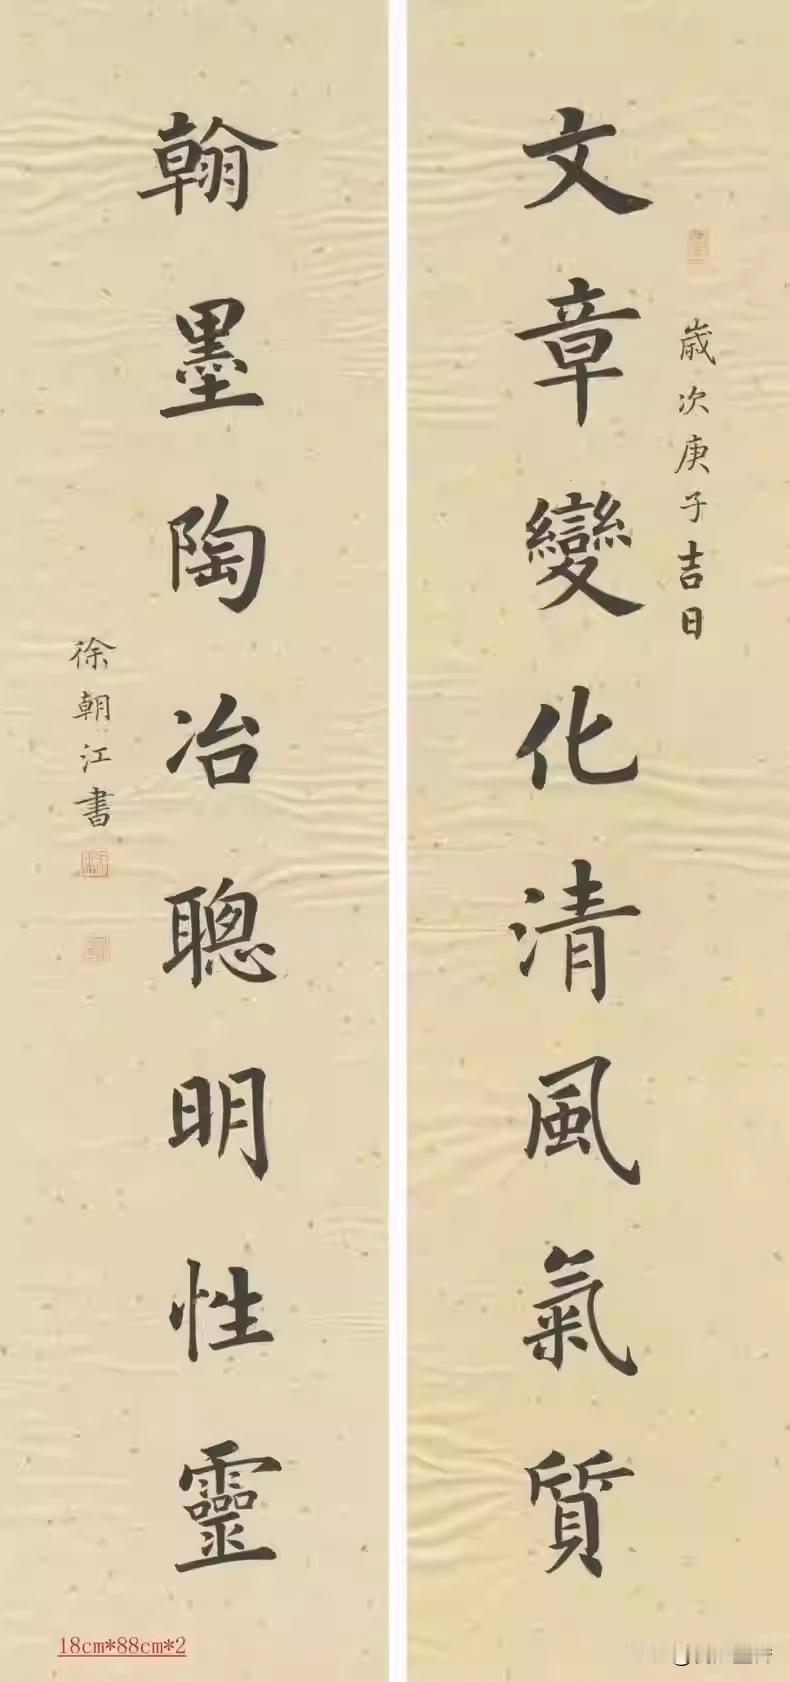 歲次庚子吉日
文章變化清風氣質
翰墨陶冶聰明性靈
徐朝江書
18cm*88cm*2